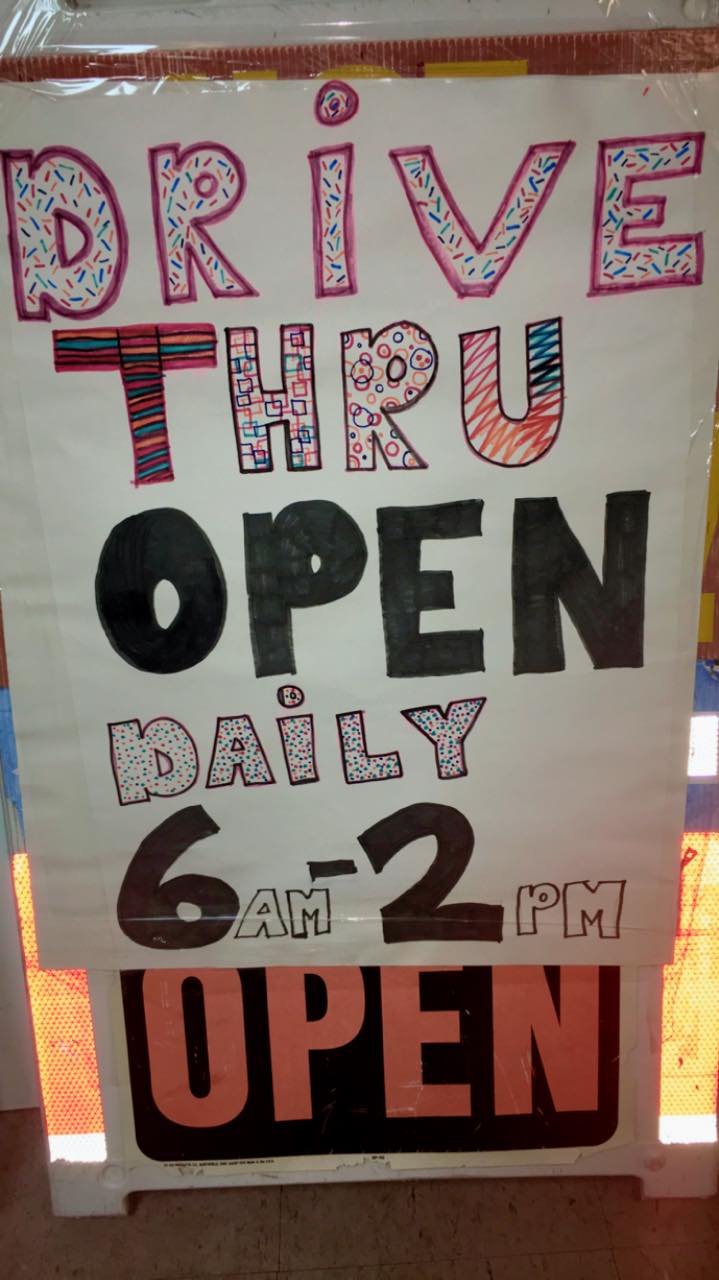 DRiVE
THRU
OPEN
DAiLY
6AM-2PM
OPEN